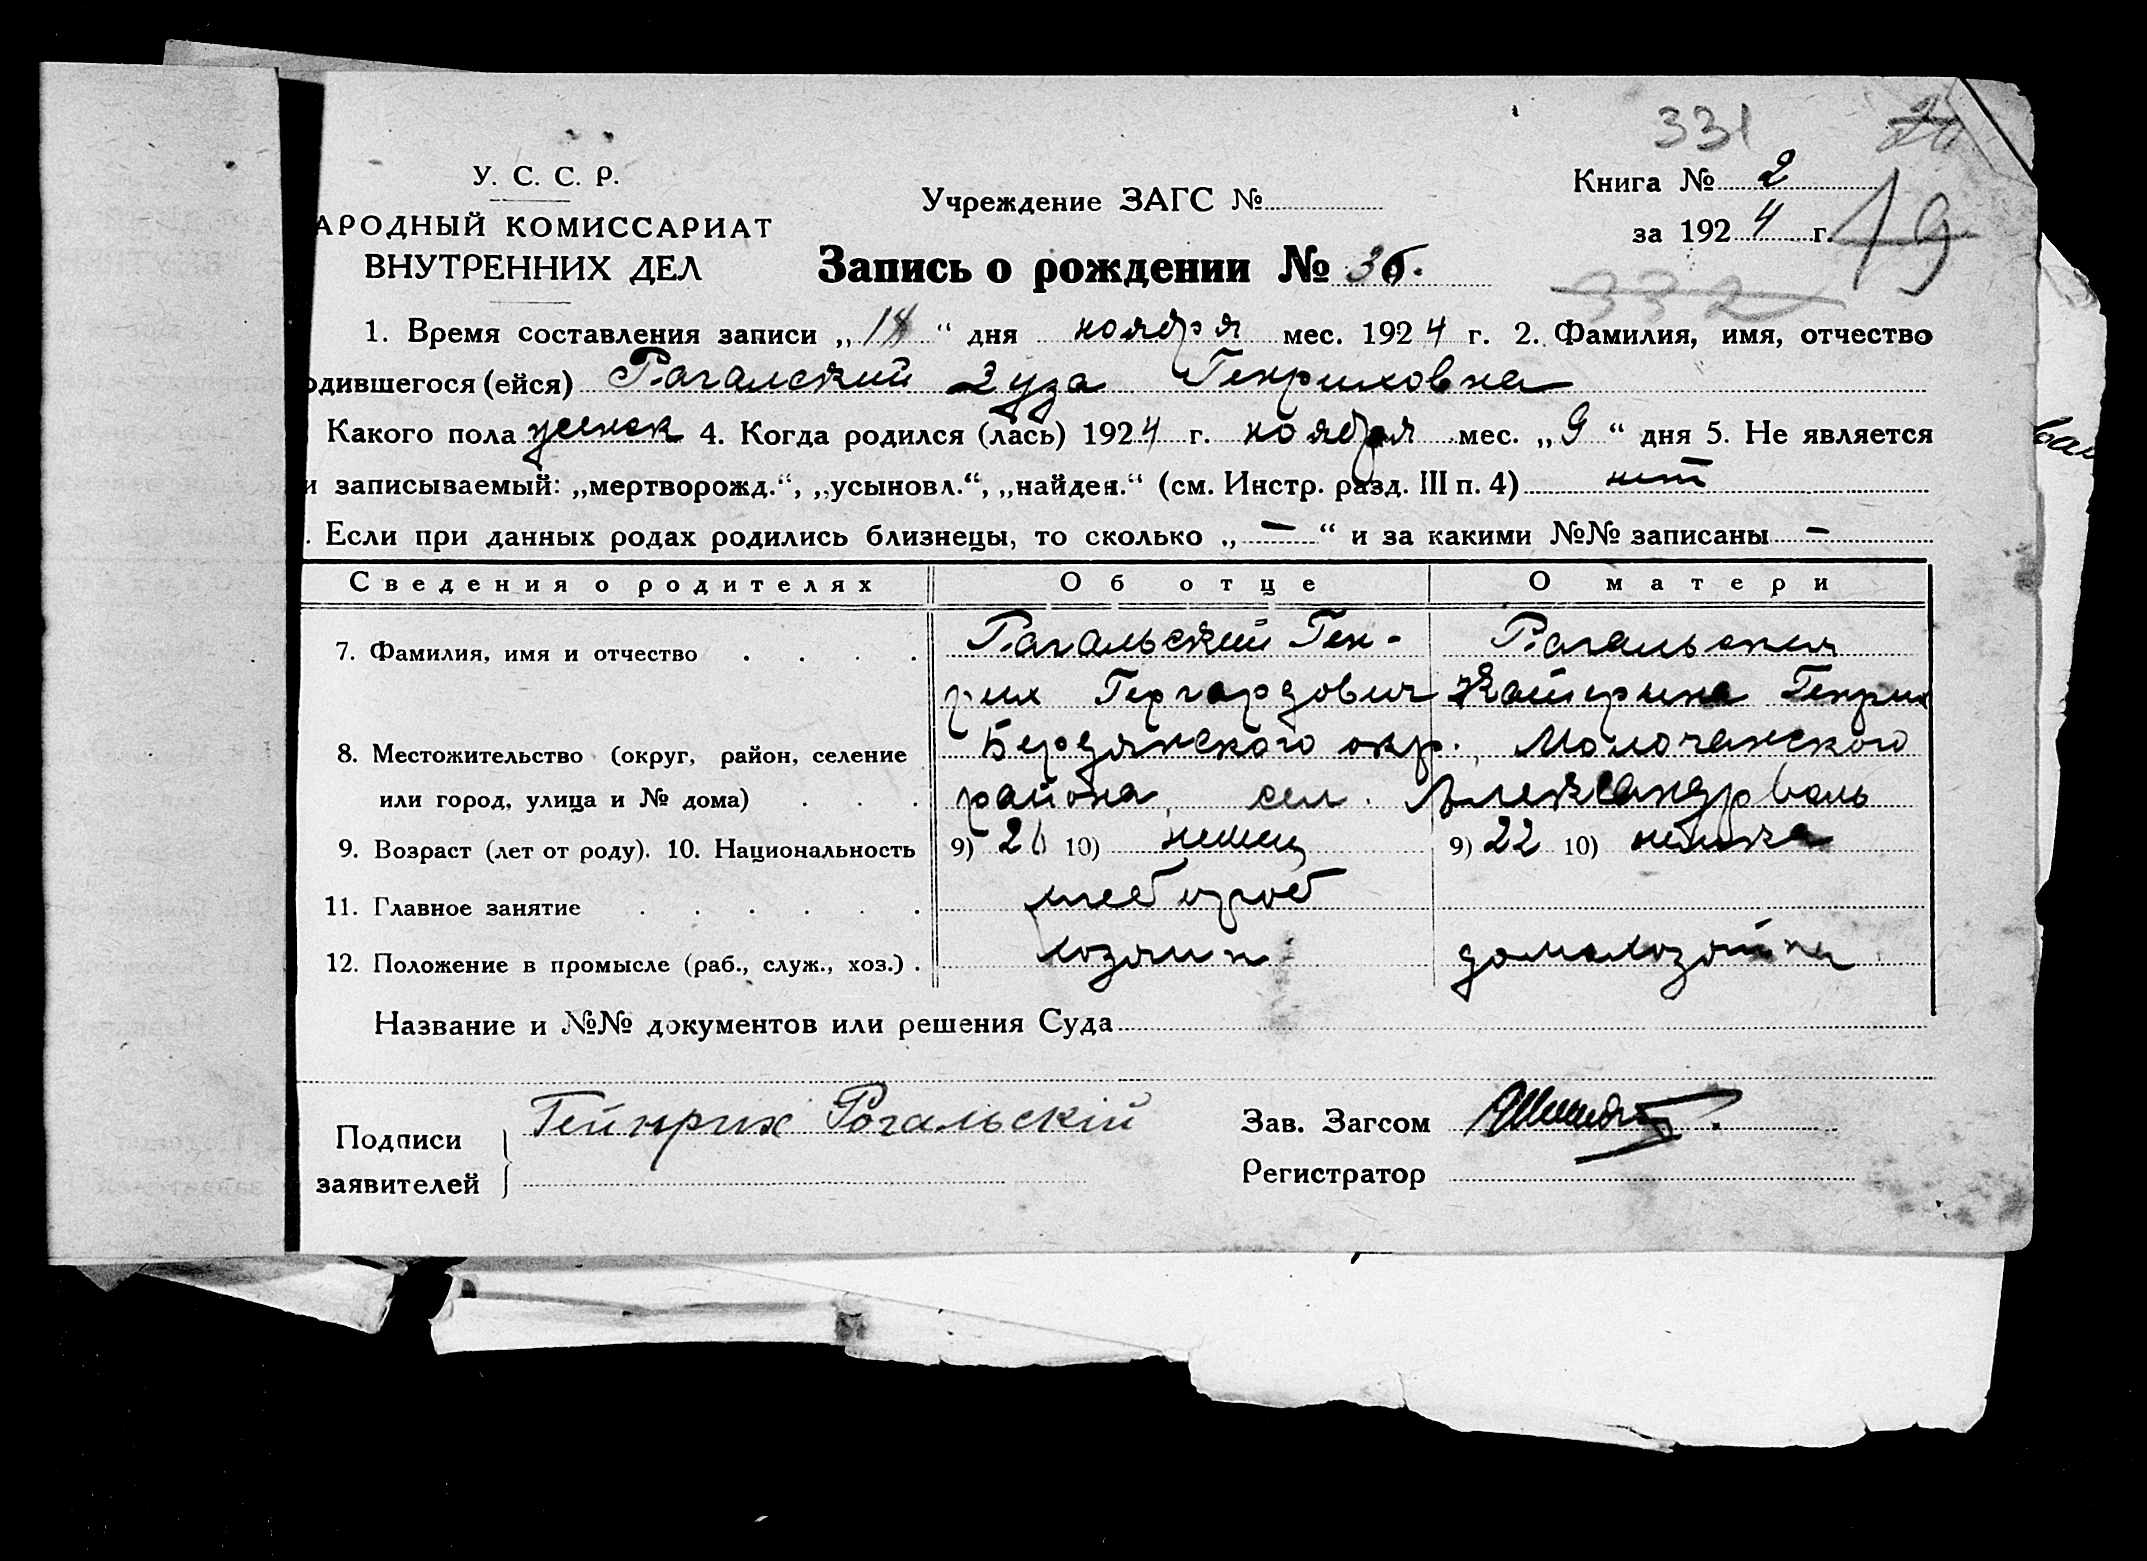 331
У. С. С. Р.
АРОДНЫЙ КОМИССАРИАТ
ВНУТРЕННИХ ДЕЛ
Учреждение ЗАГС №
Книга № 2
за 1924 г.
19
Запись о рождении № 36.
332
1. Время составления записи „14“ дня ноября мес. 1924 г. 2. Фамилия, имя, отчество
одившегося (ейся) Рагалский Зуза Генриховна
Какого пола женск 4. Когда родился (лась) 1924 г. ноября мес. „9“ дня 5. Не является
и записываемый: „мертворожд.“, „усыновл.“, „найден.“ (см. Инстр. разд. III п. 4) нет
. Если при данных родах родились близнецы, то сколько „—“ и за какими №№ записаны —
Сведения о родителях Об отце О матери
7. Фамилия, имя и отчество Рагальский Ген- Рагальская
рих Гергардович Катерина Генрих
8. Местожительство (округ, район, селение Бердянского окр. Молочанского
или город, улица и № дома) района, сел. Александрваль
9. Возраст (лет от роду). 10. Национальность 9) 26 10) немец 9) 22 10) немка
11. Главное занятие хлебороб
12. Положение в промысле (раб., служ., хоз.) хозяин домахозяйка
Название и №№ документов или решения Суда
Подписи Гейнрих Рогальскій Зав. Загсом
заявителей Регистратор